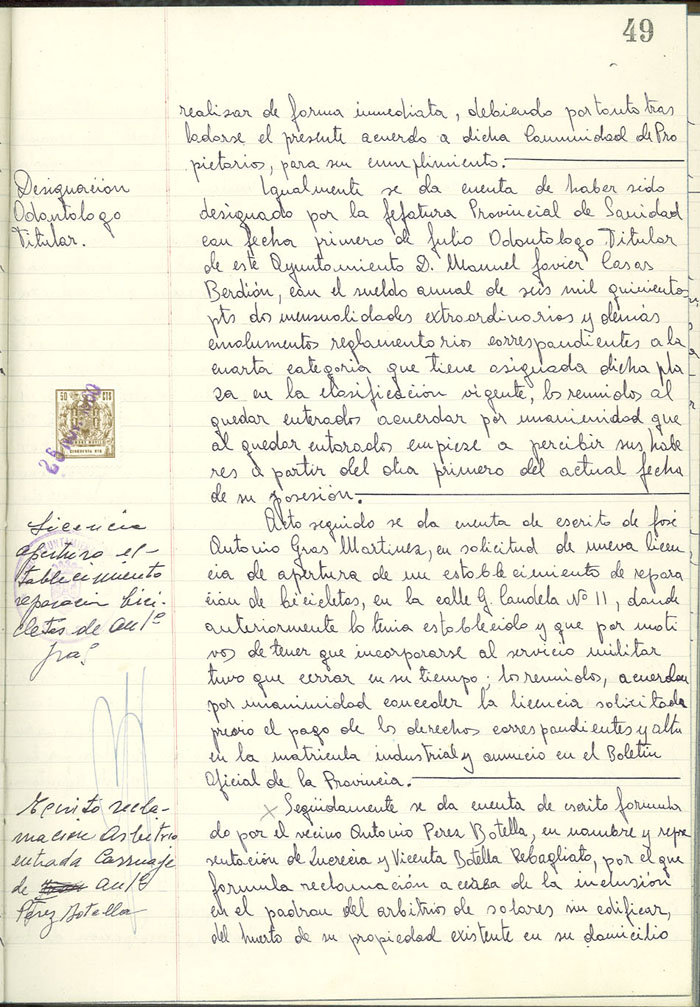 49
realizar de forma inmediata, debiendo por tanto tras
ladarse el presente acuerdo a dicha Comunidad de Pro
pietarios, para su cumplimiento.
Designación
Odontologo
Titular.
Igualmente se da cuenta de haber sido
designado por la Jefatura Provincial de Sanidad
con fecha primero de Julio Odontologo Titular
de este Ayuntamiento D. Manuel Javier Casas
Berdión, con el sueldo anual de seis mil quinientos
pts dos mensualidades extraordinarios y demás
emolumentos reglamentarios correspondientes a la
cuarta categoria que tiene asignada dicha pla
za en la clasificación vigente, los reunidos al
quedar enterados acuerdan por unanimidad que
al quedar enterados empiese a percibir sus habe
res a partir del dia primero del actual fecha
de su posesión.
50 CTS
Licencia
apertura es-
tablecimiento
reparacion bici-
cletas de Anto
Gras
Acto seguido se da cuenta de escrito de José
Antonio Gras Martinez, en solicitud de nueva licen
cia de apertura de un establecimiento de repara
ción de bicicletas, en la calle G. Candela Nº 11, donde
anteriormente lo tenia establecido y que por moti
vos de tener que incorporarse al servicio militar
tuvo que cerrar en su tiempo; los reunidos, acuerdan
por unanimidad conceder la licencia solicitada
previo el pago de los derechos correspondientes y alta
en la matricula industrial y anuncio en el Boletin
Oficial de la Provincia.
Escrito recla-
macion Arbitrio
entrada Carruaje
de Anto
Pérez Botella
Seguidamente se da cuenta de escrito formula
do por el vecino Antonio Perez Botella, en nombre y repre
sentación de Lucrecia y Vicenta Botella Rebagliato, por el que
formula reclamación a causa de la inclusión
en el padron del arbitrios de solares sin edificar,
del huerto de su propiedad existente en su domicilio